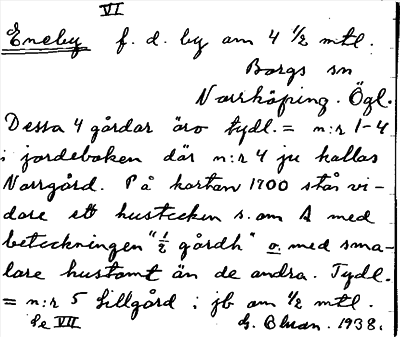 VI
Eneby f. d. by om 4 1/2 mtl.
Borgs sn
Norrköping. Ögl.
Dessa 4 gårdar äro tydl. = n:r 1-4
i jordeboken där n:r 4 ju kallas
Norrgård. På kartan 1700 står vi-
dare ett hustecken s. om A med
beteckningen "1/2 gårdh" o. med sma-
lare hustomt än de andra. Tydl.
= n:r 5 Lillgård i jb om 1/2 mtl.
Se VII G. 1938.